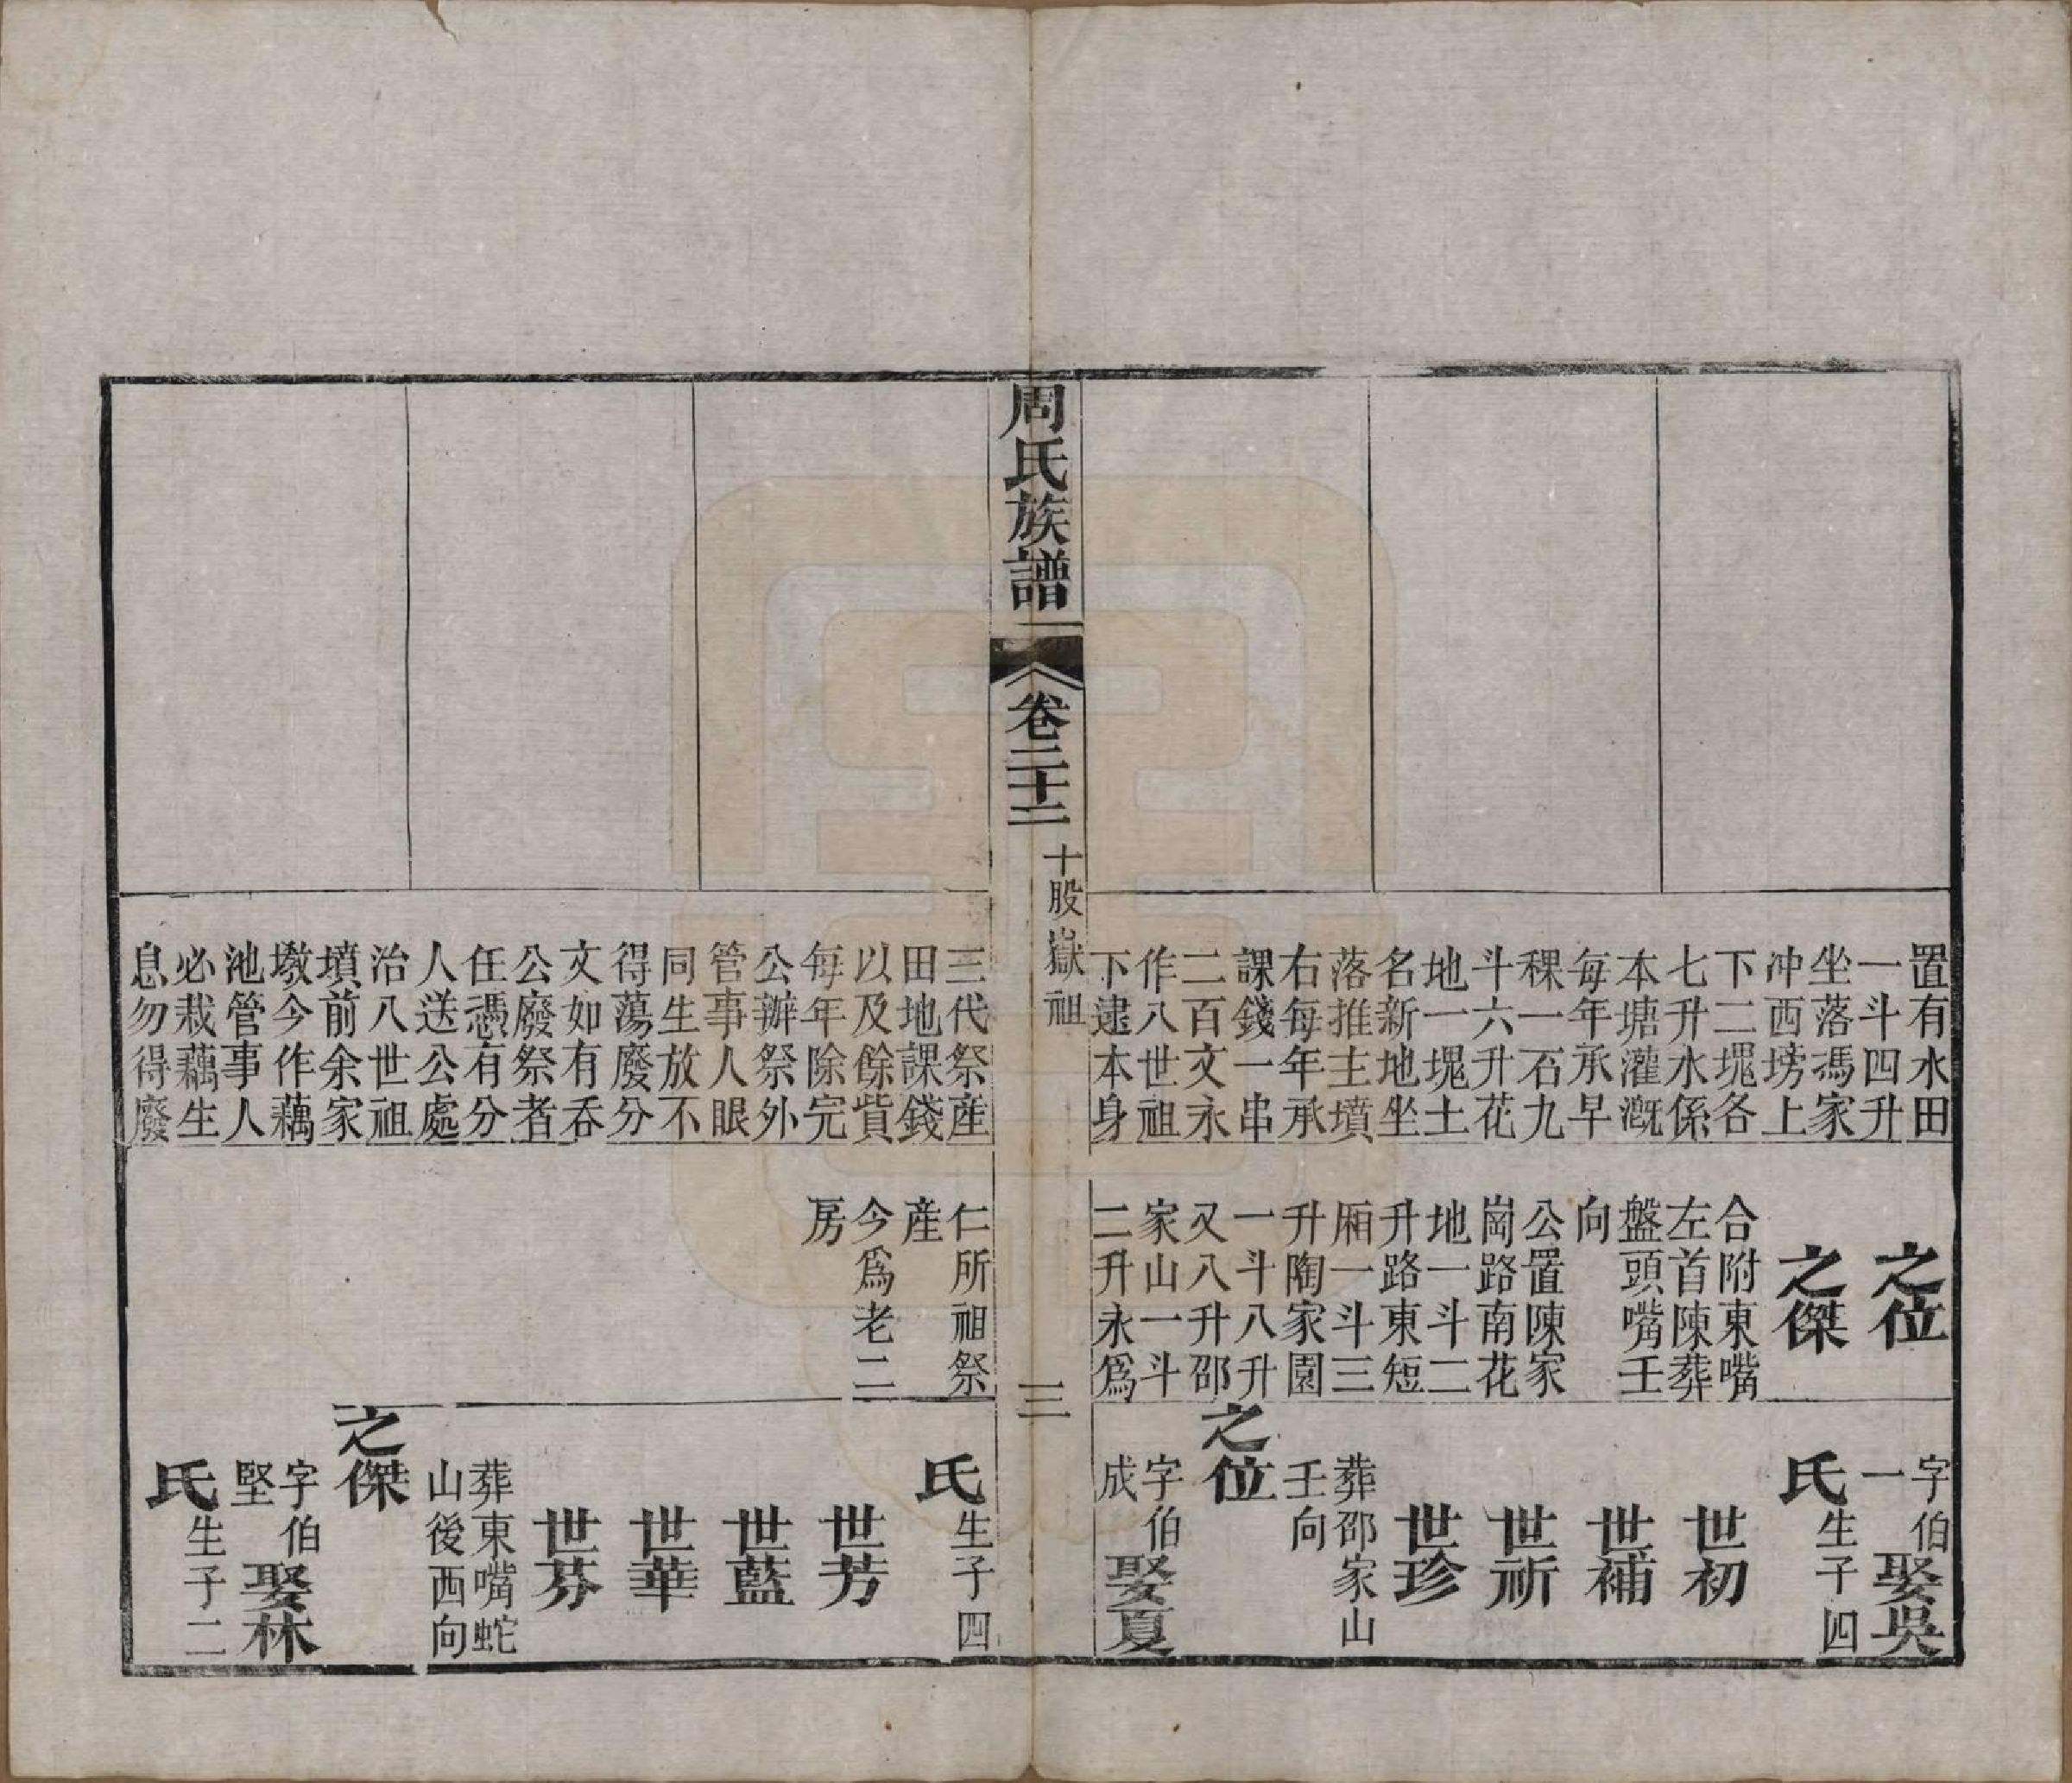 置有水田
一斗四升
坐落馮家
冲西塝上
下二塅各
七升水係
本塘灌溉
每年承早
稞一石九
斗六升花
地一塊土
名新地坐
落推主墳
右每年承
課錢一串
二百文永
作八世祖
下逮本身
之位
之傑
合附東嘴
左首陳葬
盤頭嘴壬
向
公置陳家
崗路南花
地一斗二
升路東短
厢一斗三
升陶家園
一斗八升
又八升邵
家山一斗
二升永爲
字伯
一
娶吳
氏生子四
世初
世補
世祈
世珍
葬邵家山
壬向
之位
字伯
成
娶夏
周氏族譜
卷二十二
十股嶽祖
三
三代祭産
田地課錢
以及餘貲
每年除完
公辦祭外
管事人眼
同生放不
得蕩廢分
文如有吞
公廢祭者
任憑有分
人送公處
治八世祖
墳前余家
墩今作藕
池管事人
必栽藕生
息勿得廢
仁所祖祭
産
今爲老二
房
氏生子四
世芳
世藍
世華
世芬
葬東嘴蛇
山後西向
之傑
字伯
堅
娶林
氏生子二